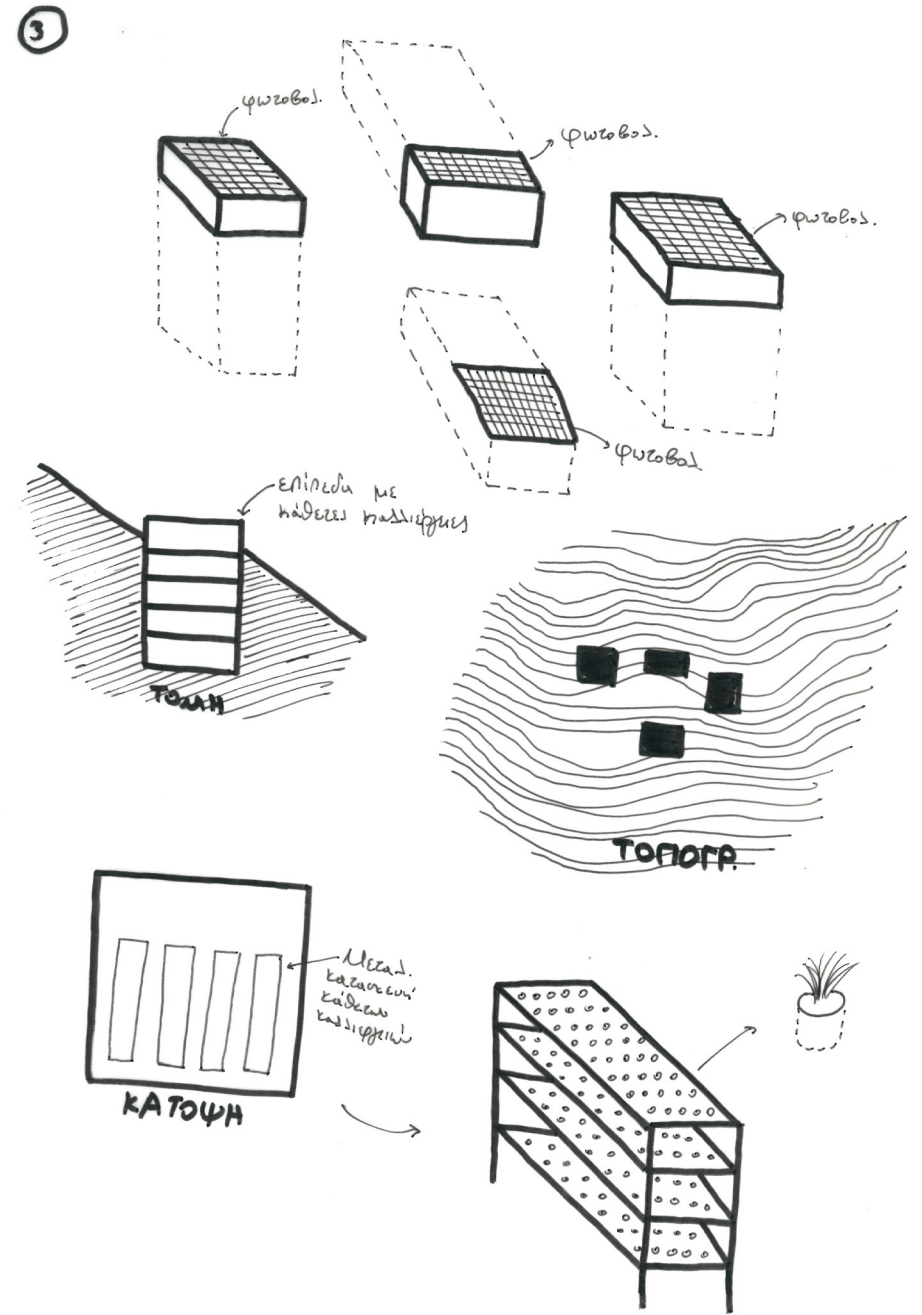 3
φωτοβολ.
φωτοβολ.
φωτοβολ.
φωτοβολ
επίπεδα με
κάθετες καλλιέργειες
ΤΟΜΗ
ΤΟΠΟΓΡ.
Μεταλ.
κατασκευή
κάθετων
καλλιεργειών
ΚΑΤΟΨΗ